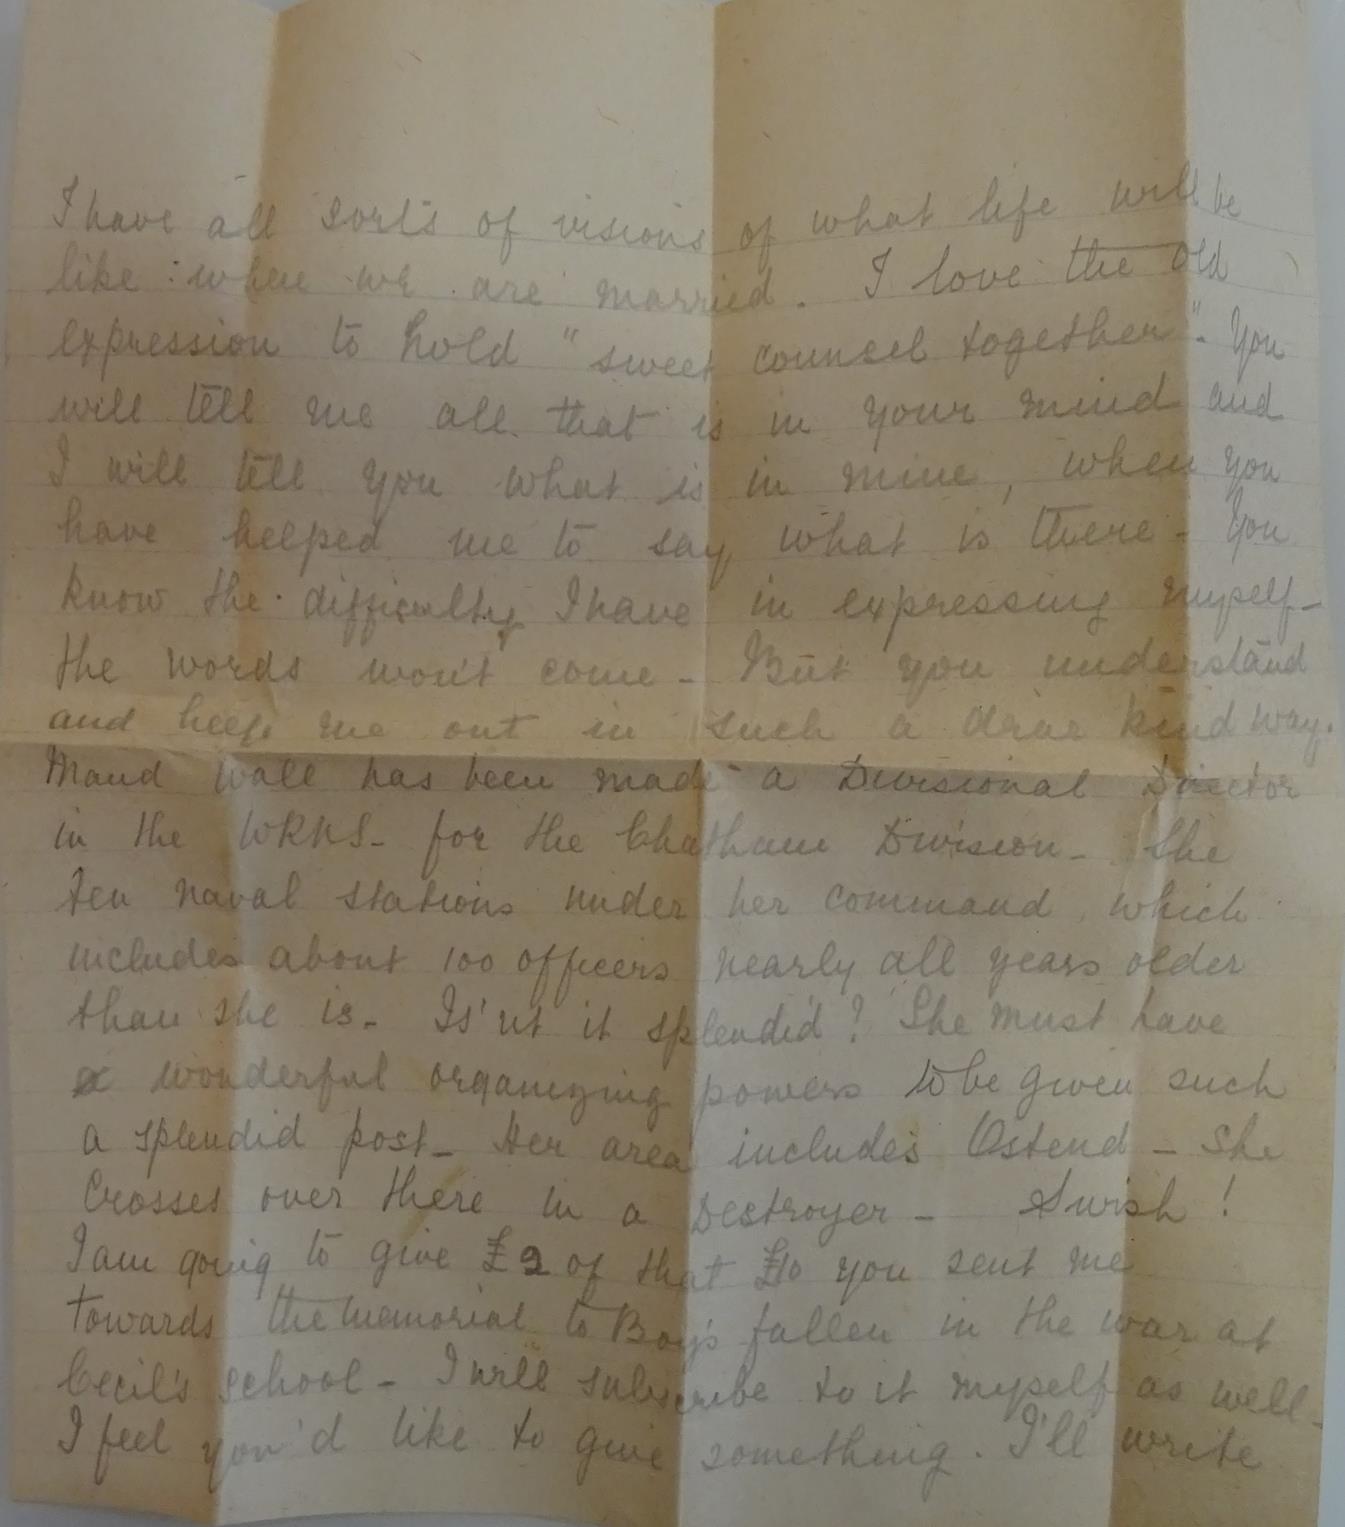 I have all sorts of visions of what life will be
like when we are married. I love the old
expression to hold "sweet counsel together". You
will tell me all that is in your mind and
I will tell you what is in mine, when you
have helped me to say what is there - You
know the difficulty I have in expressing myself -
the words won't come - But you understand
and help me out in such a dear kind way.
Maud Wall has been made a Divisional Director
in the WRNS - for the Chatham Division - She
ten naval stations under her command, which
includes about 100 officers nearly all years older
than she is - Is'nt it splendid? She must have
wonderful organizing powers to be given such
a splendid post - Her area includes Ostend - She
crosses over there in a Destroyer - Swish!
I am going to give £2 of that £10 you sent me
towards the memorial to Boys fallen in the war at
Cecil's school - I will subscribe to it myself as well -
I feel you'd like to give something. I'll write